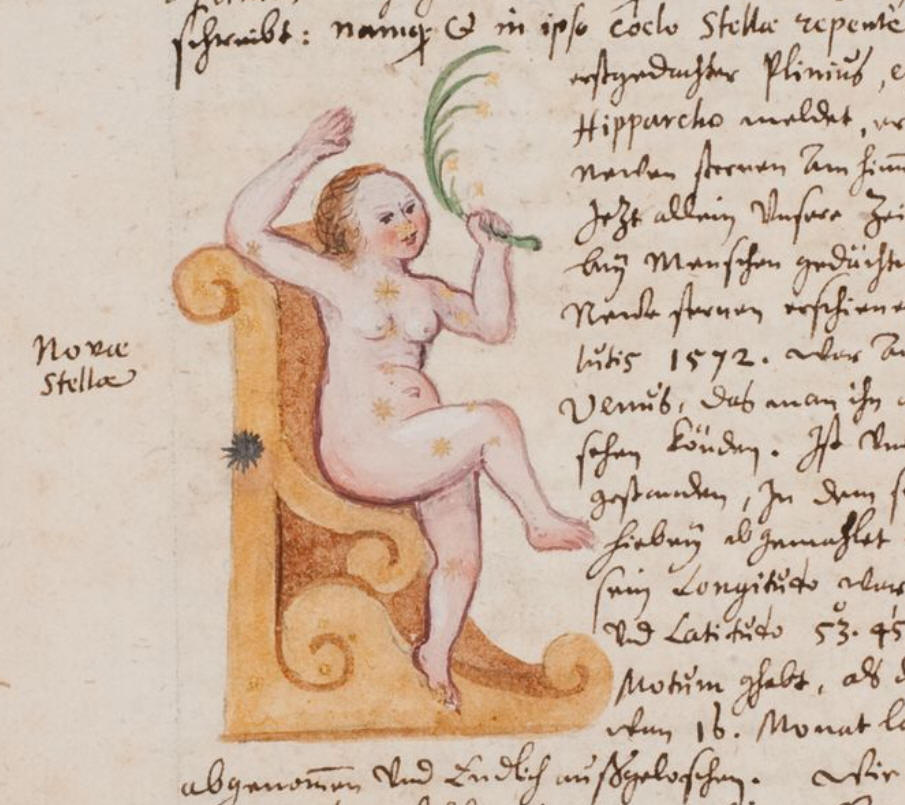 schreibt: namq̨ & in ipso Coelo Stellæ repentè
erstgedachter Plinius,
Hipparcho meldet, er
newen sternen am him̄
Jetzt allein Vnsere Zei
beÿ Menschen gedächt
Newe sternen erschiene
lutis 1572. war
Venus, das man ihn
sehen köñden. Ist
gestanden, In dem
hiebeÿ abgemahlet
sein Longitudo war
Novæ
Stellæ
Vnd Latitudo 53. 45
Motum ghabt, als
16. Monat
abgenom̄en Vnd Endlich außgeloschen. Wir